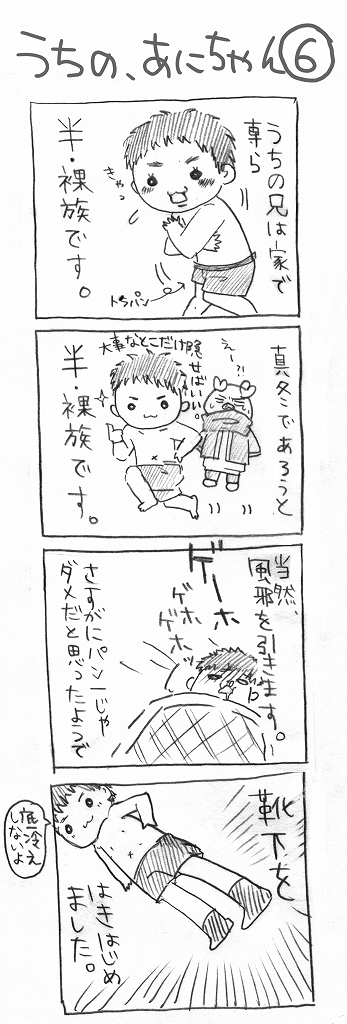 うちの、あにちゃん⑥
うちの兄は家で
専ら
半・裸族です。
きゃっ
トランパン
真冬であろうと
えー?!
大事なとこだけ隠
せばいい。
半・裸族です。
当然、
風邪を引きます。
ゲーホ
ゲホ
ゲホ
さすがにパン一じゃ
ダメだと思ったようで
靴下を
はきはじめ
ました。
底冷え
しないよ